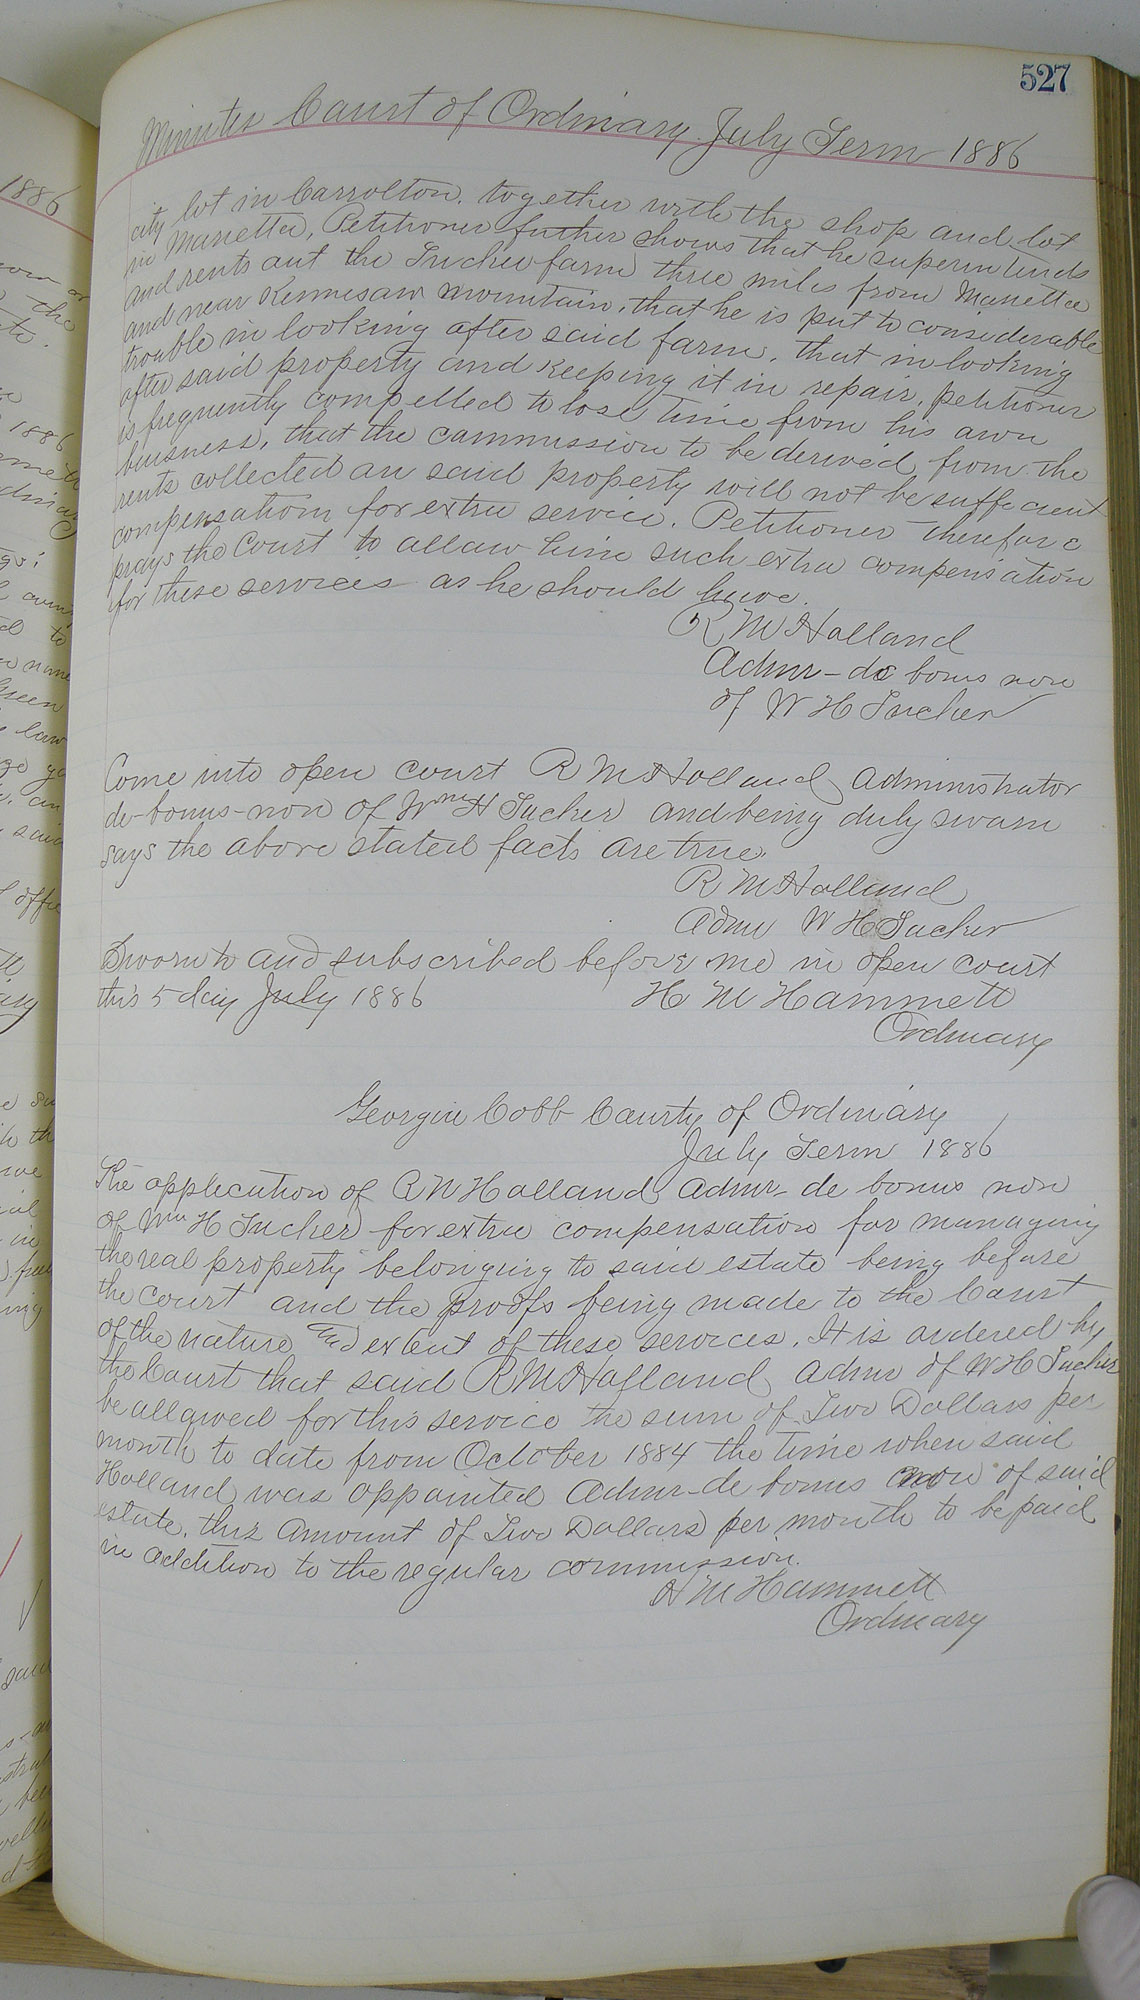 527
Minutes Court of Ordinary July Term 1886
city lot in Carrolton. together with the shop and lot
in Marietta, Petitioner further shows that he superintends
and rents out the Tucker farm three miles from Marietta
and near Kennesaw mountain, that he is put to considerable
trouble in looking after said farm. that in looking
after said property and keeping it in repair, petitioner
is frequently compelled to lose time from his own
buisness, that the commission to be derived from the
rents collected on said property will not be sufficient
compensation for extra service. Petitioner therefore
prays the Court to allow him such extra compensation
for these services as he should have.
R M Holland
Admr - de bonis non
of W H Tucker
Come into open court R M Holland administrator
de-bonus-non of Wm H Tucker and being duly sworn
says the above stated facts are true.
R M Holland
Admr W H Tucker
Sworn to and subscribed before me in open court
this 5 day July 1886 H M Hammett
Ordinary
Georgia Cobb County of Ordinary
July Term 1886
The application of R M Holland Admr- de bonus non
of Wm H Tucker for extra compensation for managing
the real property belonging to said estate being before
the court and the proofs being made to the Court
of the nature and extent of these services. It is ordered by
the Court that said R M Holland Admr of W H Tucker
be allowed for this service the sum of Two Dollars per
month to date from October 1884 the time when said
Holland was appointed Admr-de bonus non of said
estate. this amount of Two Dollars per month to be paid
in addition to the regular commission.
H M Hammett
Ordinary
1886
the
1886
Green
law
said